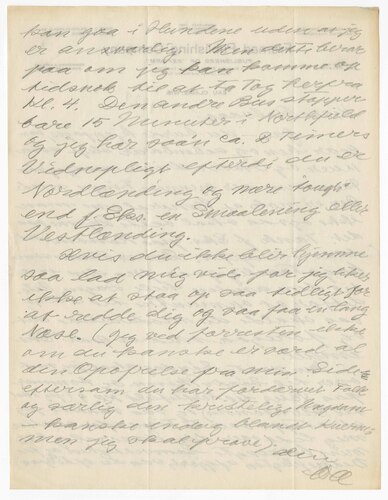 kan gaa i Hundene uden at jeg
er ansvarlig. Men dette beror
paa om jeg kan komme op
tidsnok til at ta Tog herfra
Kl. 4. Den andre Bus stopper
bare 15 Minuter i Northfield
og jeg har saa'n ca. 2 Timers
Vidnepligt efterdi du er
Nordlænding og mere "tough"
end f. Eks. en Smaalening eller
Vestlending.
Hvis du ikke blir hjemme
saa lad mig vide for jeg liker
ikke at staa op saa tidlig for
at redde dig og saa faa en lang
Næse. (Jeg ved forresten ikke
om du kanske er værd al
den Opofrelse fra min Side
eftersom du har fordærvet Folk
og særlig den kristelige Ungdom
– kanske endog blandt
men jeg skal prøve)
Din